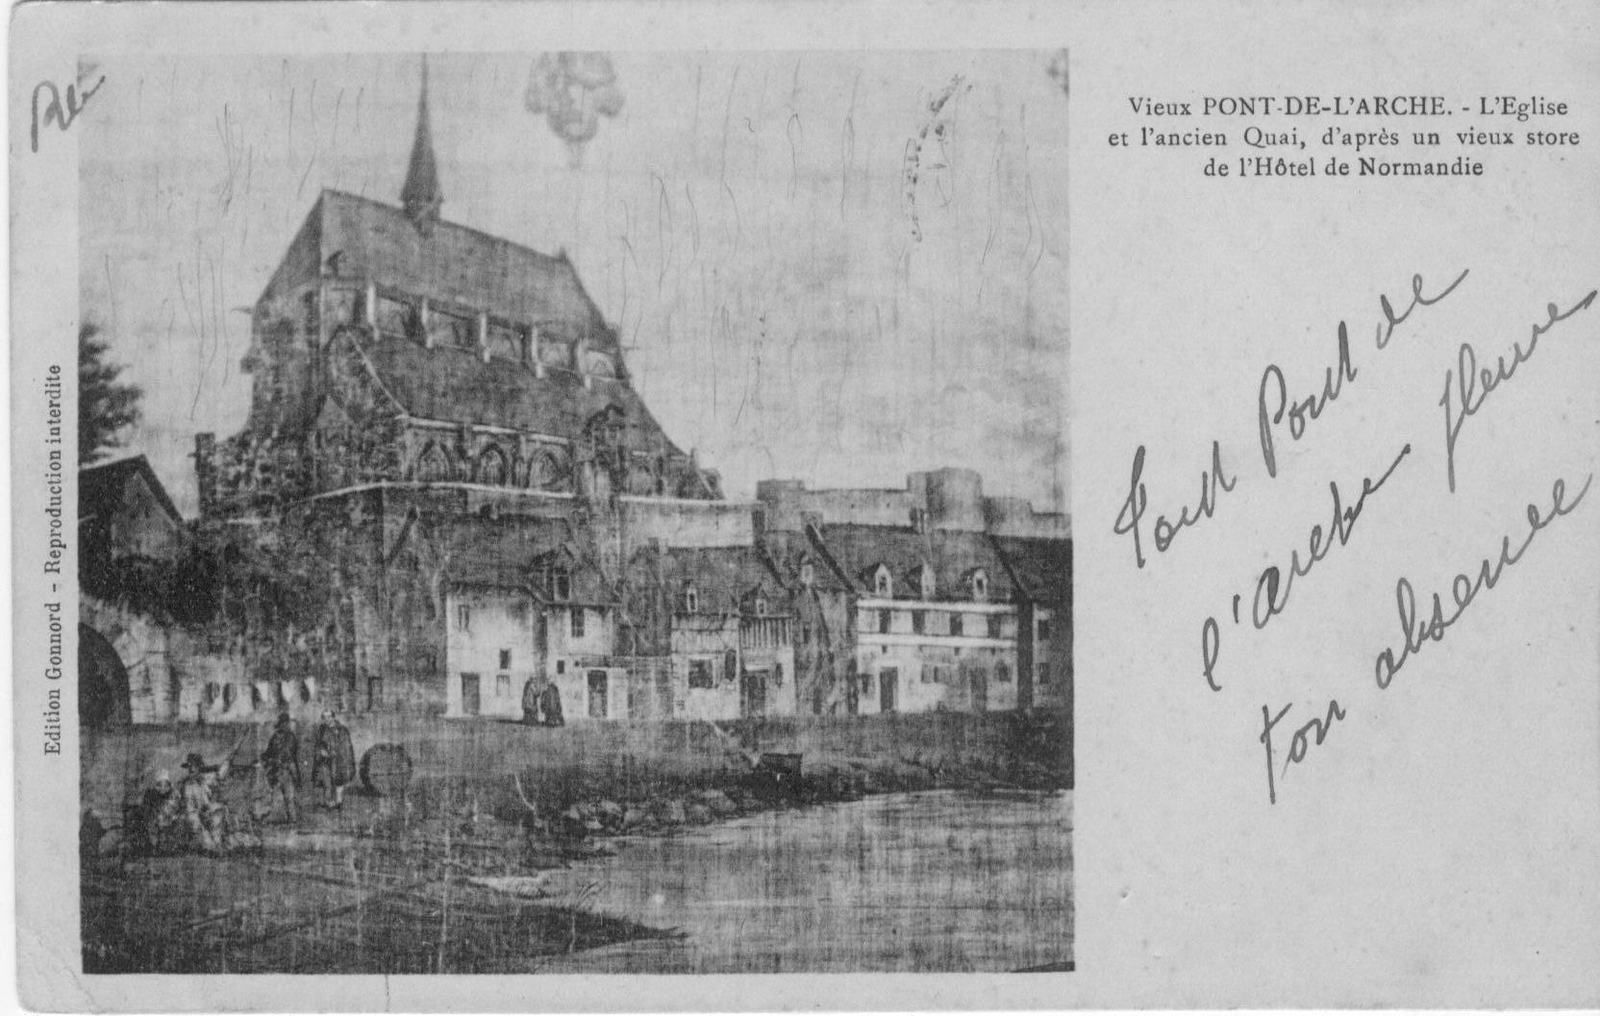 Vieux PONT-DE-L'ARCHE. - L'Eglise
et l'ancien Quai, d'après un vieux store
de l'Hôtel de Normandie
Tout Pont de
l'arche pleure
ton absence
Edition Gonnord - Reproduction interdite